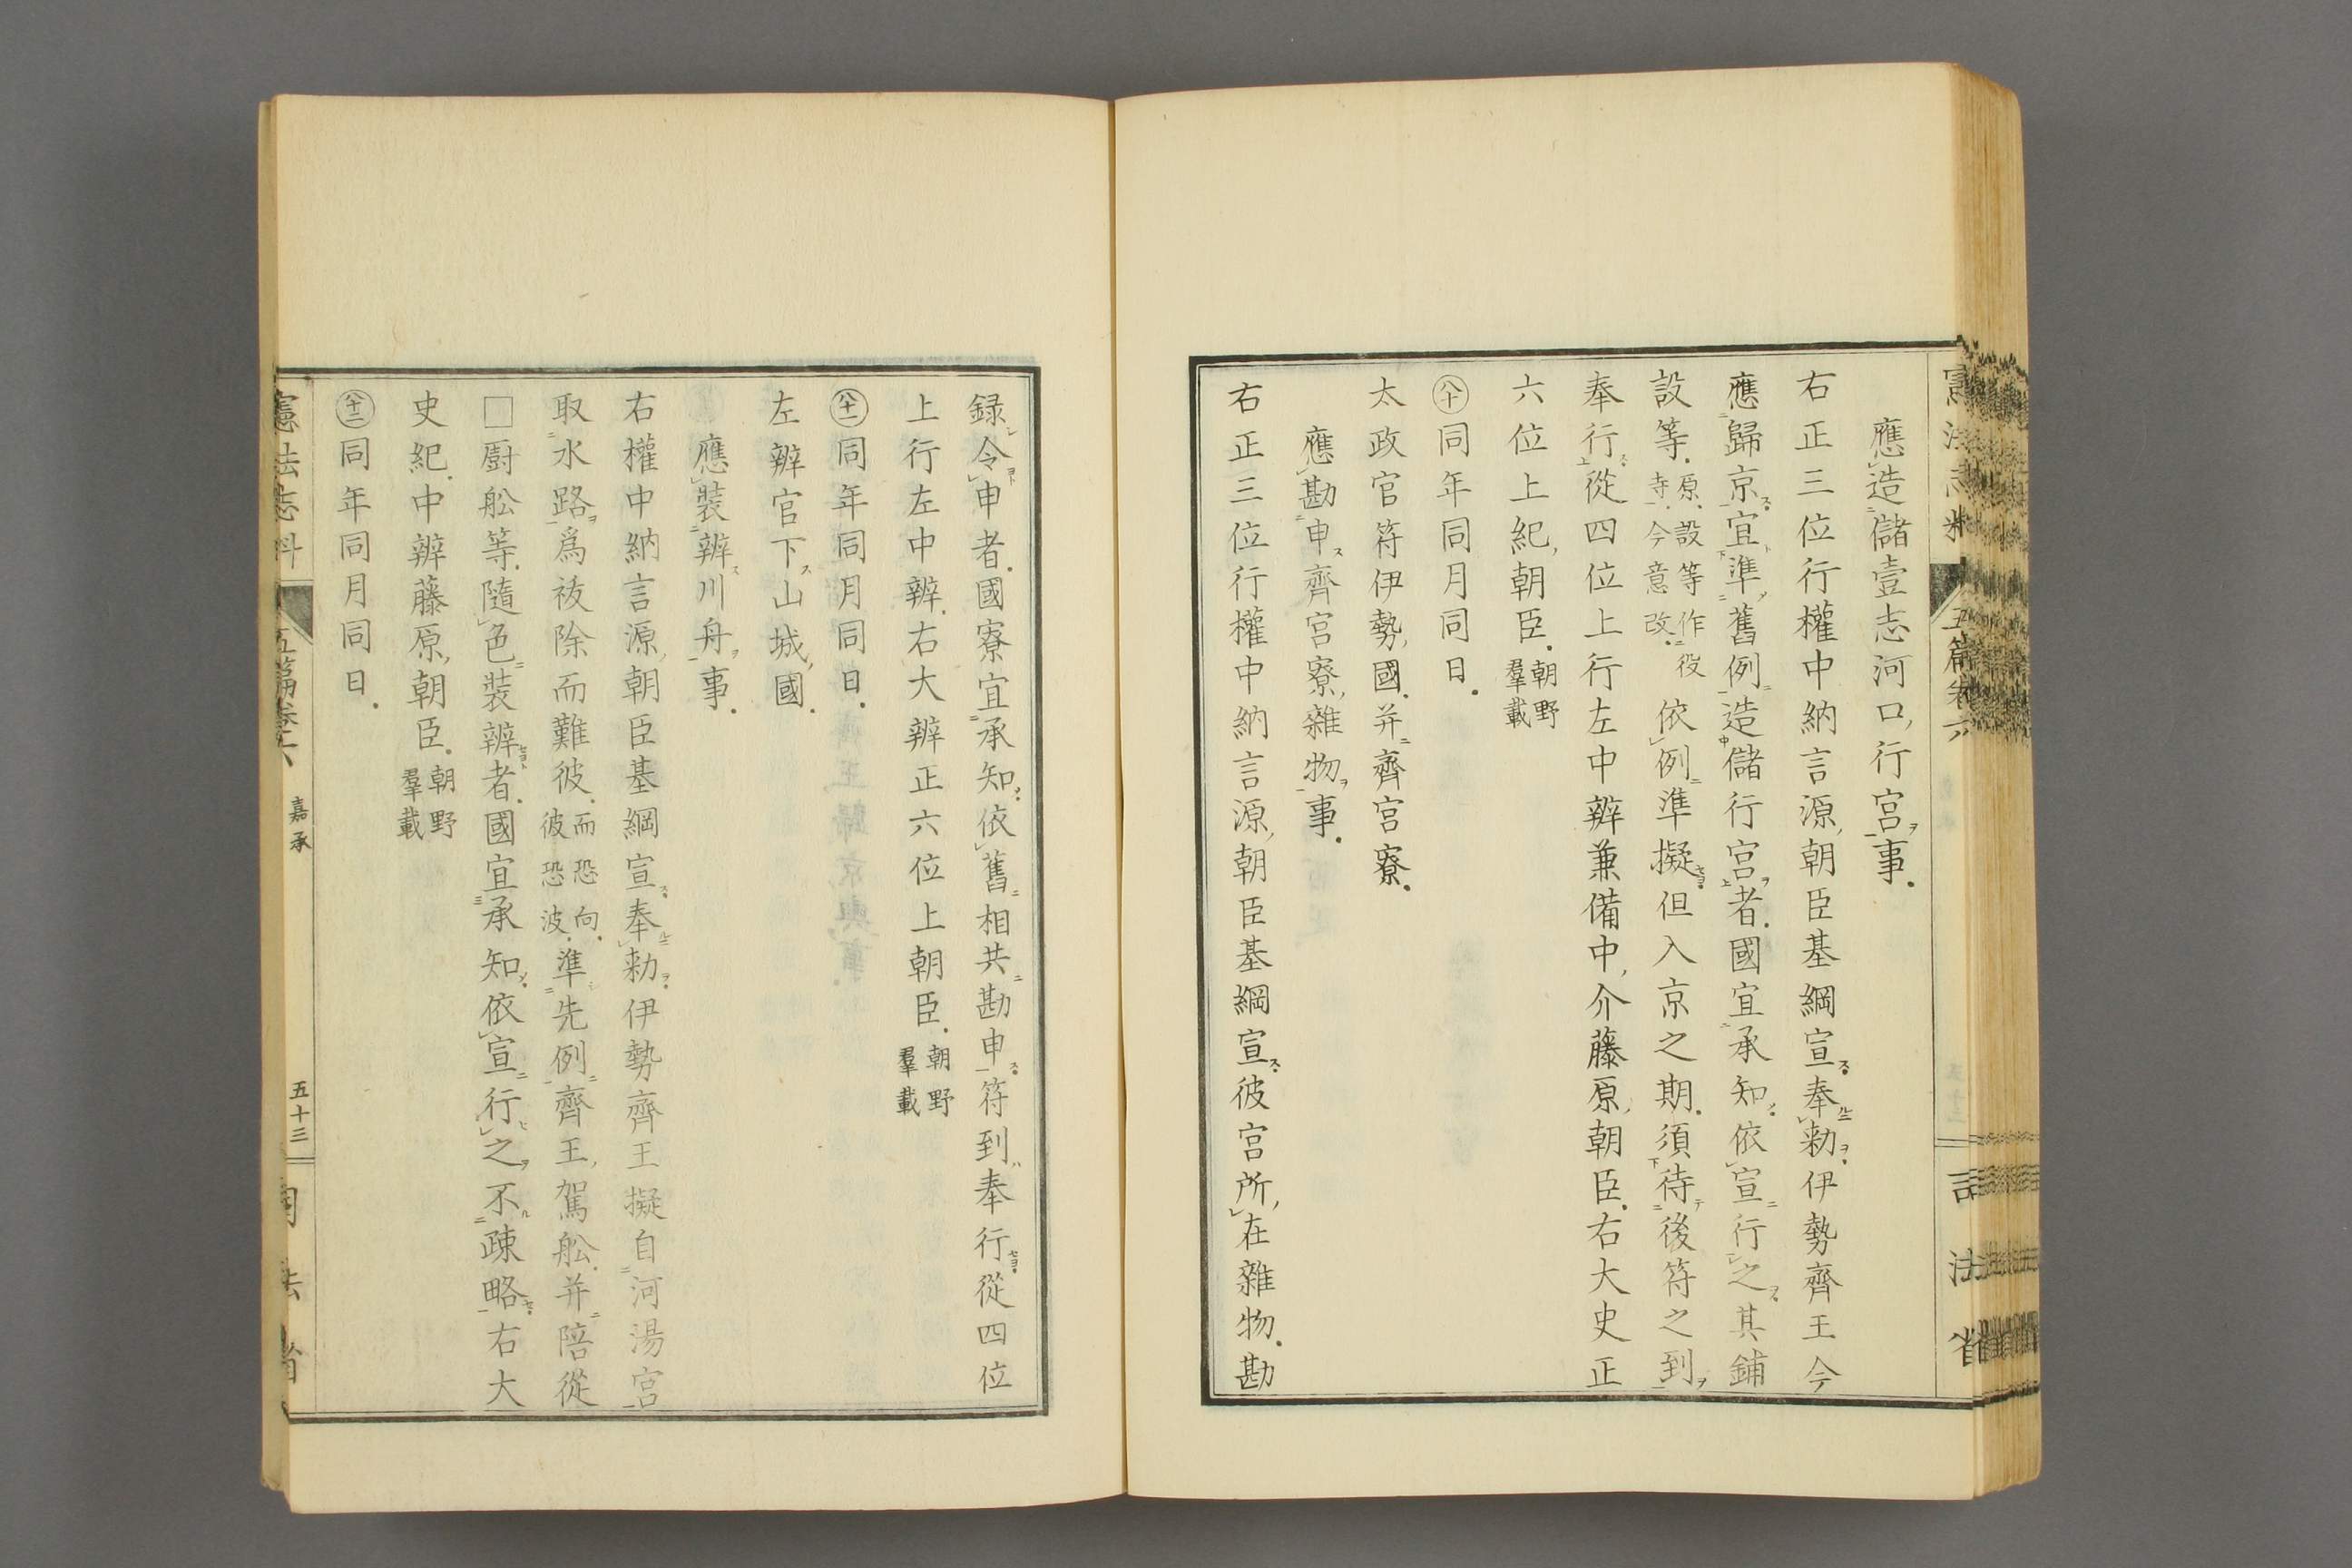 應造儲壹志河口行宮事
右正三位行權中納言源朝臣基綱宣奉勅伊勢齊王今
應歸京宜準舊例造儲行宮者國宜承知依宣行之其鋪
設等原設等作役寺今意改依例準擬但入京之期須待後符之到
奉行從四位上行左中辨兼備中介藤原朝臣右大史正
六位上紀朝臣朝野羣載
八十同年同月同日
太政官符伊勢國并齊宮寮
應勘申齊宮寮雜物事
右正三位行權中納言源朝臣基綱宣彼宮所在雜物勘
録令申者國寮宜承知依舊相共勘申符到奉行從四位
上行左中辨右大辨正六位上朝臣朝野羣載
八十一同年同月同日
左辨官下山城國
應裝辨川舟事
右權中納言源朝臣基綱宣奉勅伊勢齊王擬自河湯宮
取水路爲祓除而難彼而恐向彼恐波準先例齊王駕舩并陪從
□厨舩等隨色裝辨者國宜承知依宣行之不疎略右大
史紀中辨藤原朝臣朝野羣載
八十二同年同月同日
憲法志料 五篇卷六 嘉承 五十三